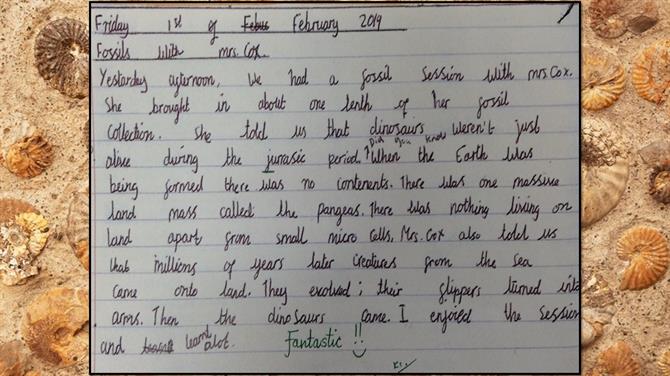 Friday 1st of Febus February 2019
Fossils With mrs. Cox.
Yesterday afternoon, We had a fossil session with mrs Cox.
She brought in about one tenth of her fossil
collection. She told us that dinosaurs weren't just
Did you know
alive during the jurasic period. When the Earth was
being formed there was no contenents. There was one massive
land mass called the pangeas. There was nothing living on
land apart from small micro cells. Mrs. Cox also told us
that millions of years later creatures from the sea
came onto land. They evolved; their flippers turned into
arms. Then the dinosaurs came. I enjoied the session
and learnt alot. Fantastic!!